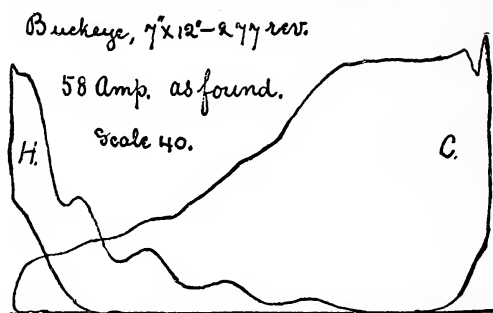 Buckeye, 7"x12"-277 rev.
58 Amp. as found.
Scale 40.
H.
C.